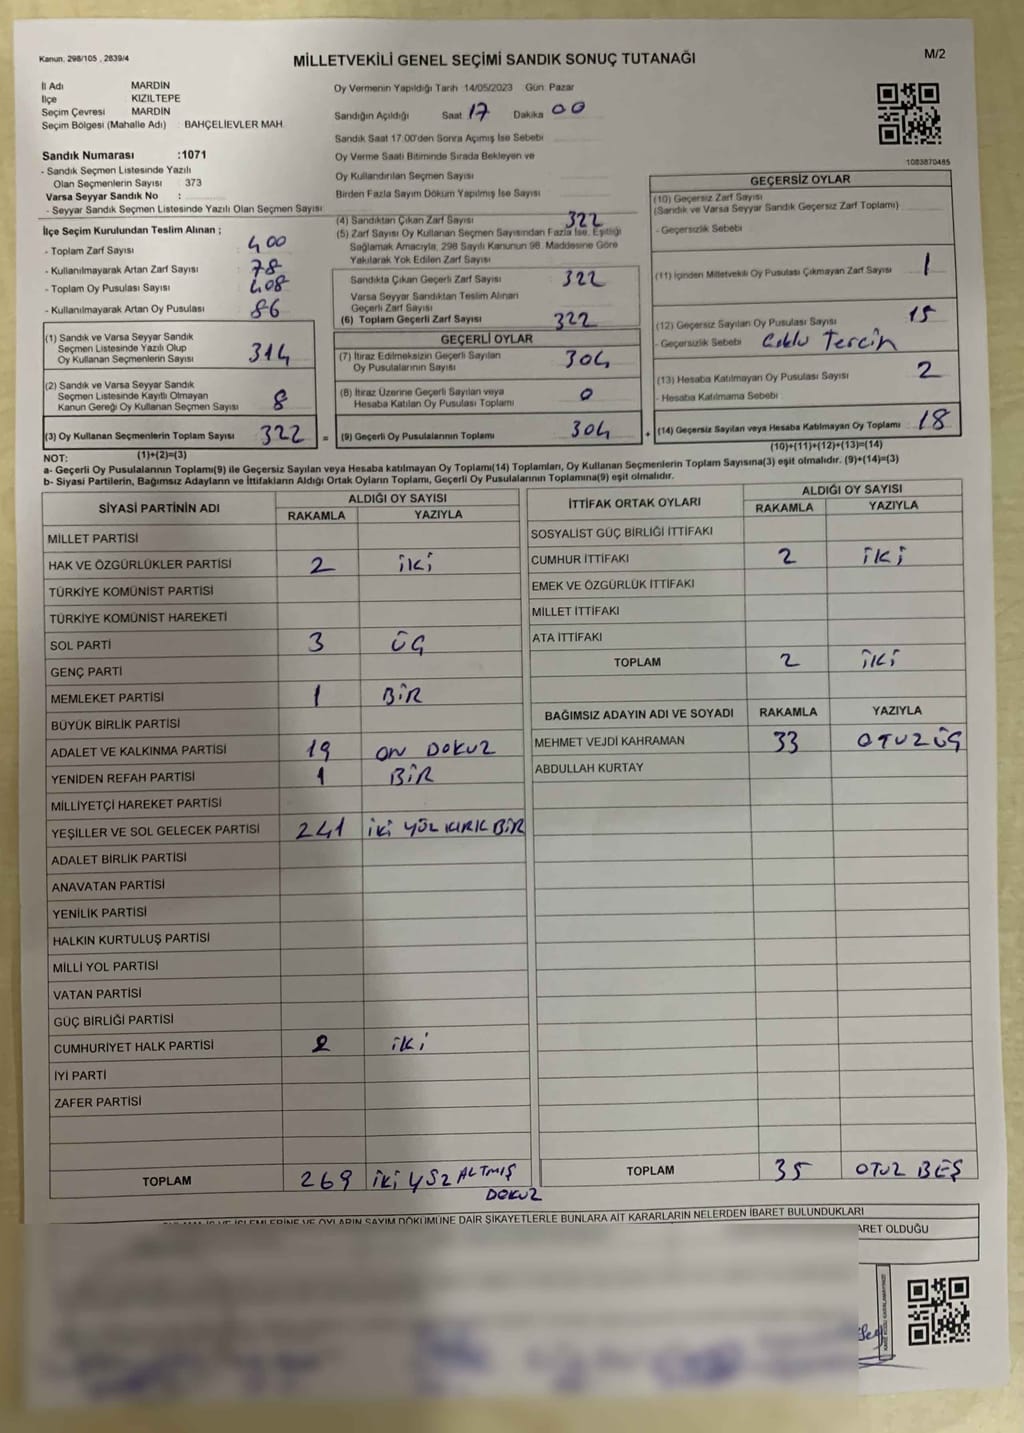 Kanun. 298/105 , 2839/4
MİLLETVEKİLİ GENEL SEÇİMİ SANDIK SONUÇ TUTANAĞI
M/2
İl Adı MARDİN
İlçe KIZILTEPE
Seçim Çevresi MARDİN
Seçim Bölgesi (Mahalle Adı) : BAHÇELİEVLER MAH.
Sandık Numarası :1071
- Sandık Seçmen Listesinde Yazılı
Olan Seçmenlerin Sayısı : 373
Varsa Seyyar Sandık No :
- Seyyar Sandık Seçmen Listesinde Yazılı Olan Seçmen Sayısı:
İlçe Seçim Kurulundan Teslim Alınan ;
- Toplam Zarf Sayısı 400
- Kullanılmayarak Artan Zarf Sayısı 78
- Toplam Oy Pusulası Sayısı 408
- Kullanılmayarak Artan Oy Pusulası 86
(1) Sandık ve Varsa Seyyar Sandık
Seçmen Listesinde Yazılı Olup
Oy Kullanan Seçmenlerin Sayısı 314
(2) Sandık ve Varsa Seyyar Sandık
Seçmen Listesinde Kayıtlı Olmayan
Kanun Gereği Oy Kullanan Seçmen Sayısı 8
(3) Oy Kullanan Seçmenlerin Toplam Sayısı 322 =
Oy Vermenin Yapıldığı Tarih 14/05/2023 Gün: Pazar
Sandığın Açıldığı Saat 17 Dakika 00
Sandık Saat 17:00'den Sonra Açımış İse Sebebi
Oy Verme Saati Bitiminde Sırada Bekleyen ve
Oy Kullandırılan Seçmen Sayısı
Birden Fazla Sayım Döküm Yapılmış İse Sayısı
(4) Sandıktan Çıkan Zarf Sayısı 322
(5) Zarf Sayısı Oy Kullanan Seçmen Sayısından Fazla İse, Eşitliği
Sağlamak Amacıyla, 298 Sayılı Kanunun 98. Maddesine Göre
Yakılarak Yok Edilen Zarf Sayısı
Sandıkta Çıkan Geçerli Zarf Sayısı 322
Varsa Seyyar Sandıktan Teslim Alınan
Geçerli Zarf Sayısı
(6) Toplam Geçerli Zarf Sayısı 322
GEÇERLİ OYLAR
(7) İtiraz Edilmeksizin Geçerli Sayılan
Oy Pusulalarının Sayısı 304
(8) İtiraz Üzerine Geçerli Sayılan veya
Hesaba Katılan Oy Pusulası Toplamı 0
(9) Geçerli Oy Pusulalarının Toplamı 304 +
1083870485
GEÇERSİZ OYLAR
(10) Geçersiz Zarf Sayısı
(Sandık ve Varsa Seyyar Sandık Geçersiz Zarf Toplamı)
- Geçersizlik Sebebi
(11) İçinden Milletvekili Oy Pusulası Çıkmayan Zarf Sayısı 1
(12) Geçersiz Sayılan Oy Pusulası Sayısı 15
- Geçersizlik Sebebi Çoklu Tercih
(13) Hesaba Katılmayan Oy Pusulası Sayısı 2
- Hesaba Katılmama Sebebi
(14) Geçersiz Sayılan veya Hesaba Katılmayan Oy Toplamı 18
NOT: (1)+(2)=(3) (10)+(11)+(12)+(13)=(14)
a- Geçerli Oy Pusulalarının Toplamı(9) ile Geçersiz Sayılan veya Hesaba katılmayan Oy Toplamı(14) Toplamları, Oy Kullanan Seçmenlerin Toplam Sayısına(3) eşit olmalıdır. (9)+(14)=(3)
b- Siyasi Partilerin, Bağımsız Adayların ve İttifakların Aldığı Ortak Oyların Toplamı, Geçerli Oy Pusulalarının Toplamına(9) eşit olmalıdır.
SİYASİ PARTİNİN ADI ALDIĞI OY SAYISI
RAKAMLA YAZIYLA
MİLLET PARTİSİ
HAK VE ÖZGÜRLÜKLER PARTİSİ 2 İKİ
TÜRKİYE KOMÜNİST PARTİSİ
TÜRKİYE KOMÜNİST HAREKETİ
SOL PARTİ 3 ÜÇ
GENÇ PARTİ
MEMLEKET PARTİSİ 1 BİR
BÜYÜK BİRLİK PARTİSİ
ADALET VE KALKINMA PARTİSİ 19 ON DOKUZ
YENİDEN REFAH PARTİSİ 1 BİR
MİLLİYETÇİ HAREKET PARTİSİ
YEŞİLLER VE SOL GELECEK PARTİSİ 241 İKİ YÜZ KIRK BİR
ADALET BİRLİK PARTİSİ
ANAVATAN PARTİSİ
YENİLİK PARTİSİ
HALKIN KURTULUŞ PARTİSİ
MİLLİ YOL PARTİSİ
VATAN PARTİSİ
GÜÇ BİRLİĞİ PARTİSİ
CUMHURİYET HALK PARTİSİ 2 İKİ
İYİ PARTİ
ZAFER PARTİSİ
TOPLAM 269 İKİ YÜZ ALTMIŞ
DOKUZ
İTTİFAK ORTAK OYLARI ALDIĞI OY SAYISI
RAKAMLA YAZIYLA
SOSYALİST GÜÇ BİRLİĞİ İTTİFAKI
CUMHUR İTTİFAKI 2 İKİ
EMEK VE ÖZGÜRLÜK İTTİFAKI
MİLLET İTTİFAKI
ATA İTTİFAKI
TOPLAM 2 İKİ
BAĞIMSIZ ADAYIN ADI VE SOYADI RAKAMLA YAZIYLA
MEHMET VEJDİ KAHRAMAN 33 OTUZ ÜÇ
ABDULLAH KURTAY
TOPLAM 35 OTUZ BEŞ
İŞLEMLERİNE VE OYLARIN SAYIM DÖKÜMÜNE DAİR ŞİKAYETLERLE BUNLARA AİT KARARLARIN NELERDEN İBARET BULUNDUKLARI
OLDUĞU